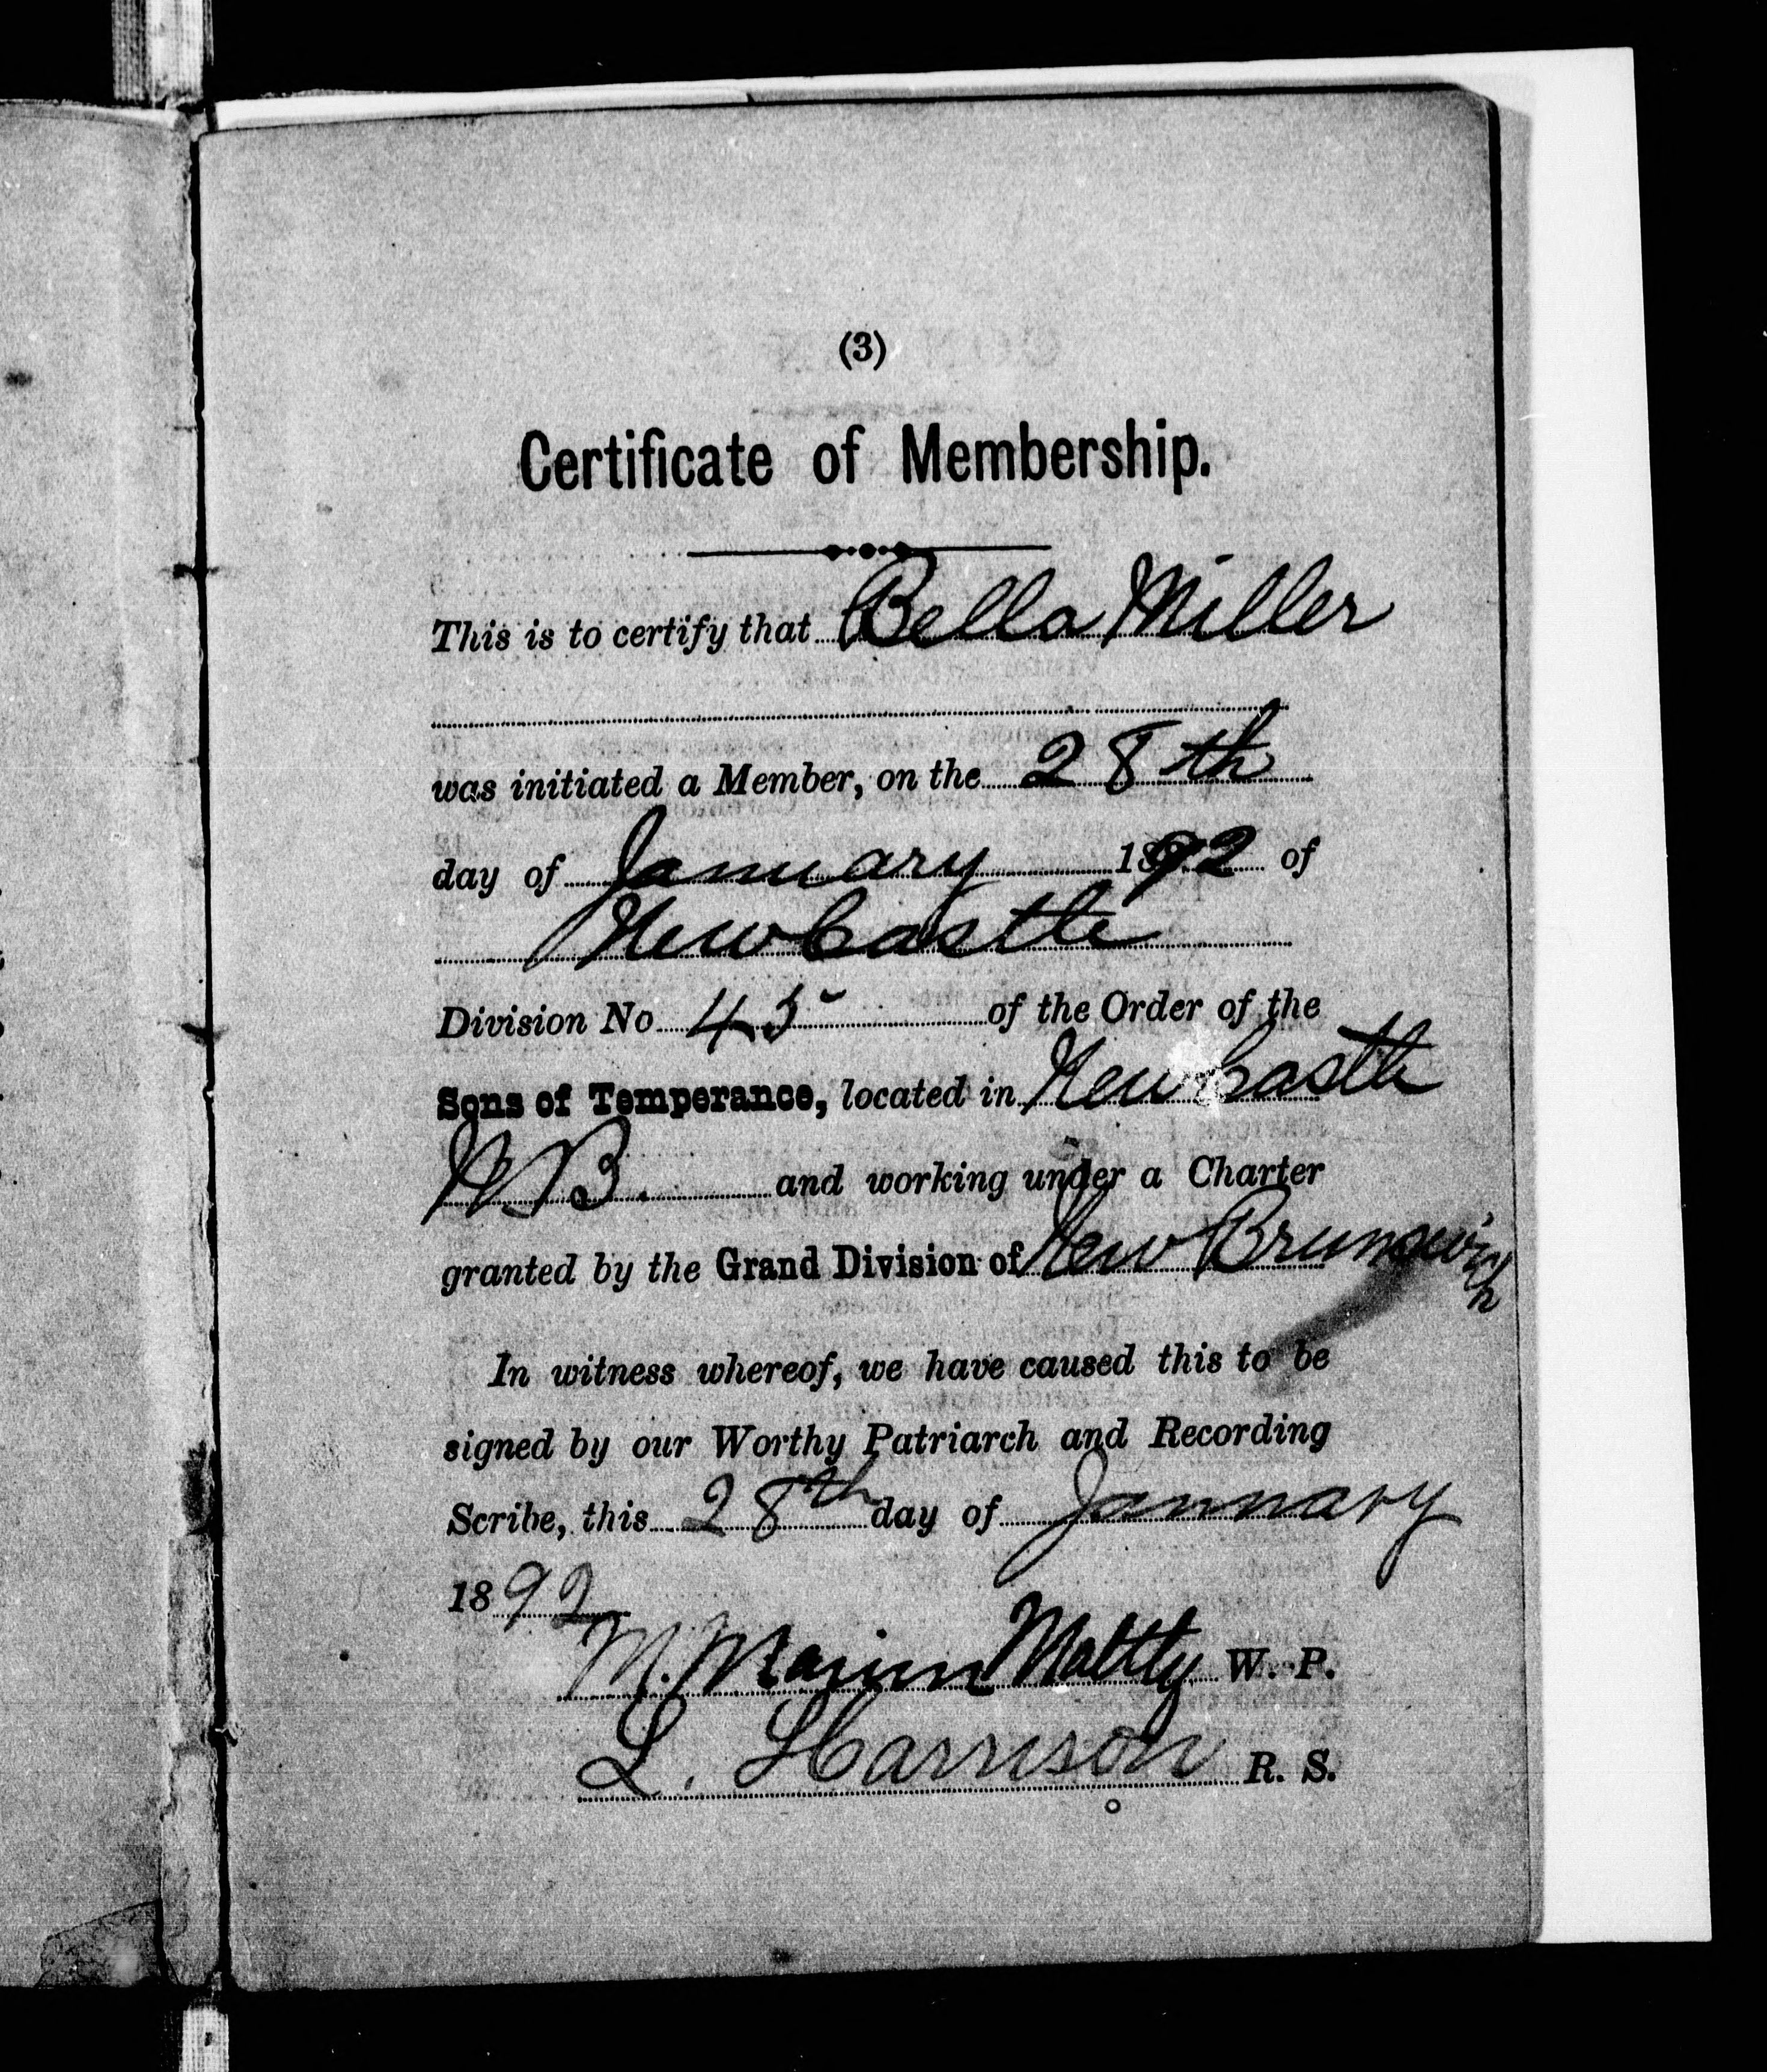 (3)
Certificate of Membership.
This is to certify that Bella Miller
was initiated a Member, on the 28th
day of January 1892 of
Newcastle
Division No 45 of the Order of the
Sons of Temperance, located in Newcastle
N B. and working under a Charter
granted by the Grand Division of New Brunswick
In witness whereof, we have caused this to be
signed by our Worthy Patriarch and Recording
Scribe, this 28th day of January
1892
M. W. P.
L. Harrison R. S.